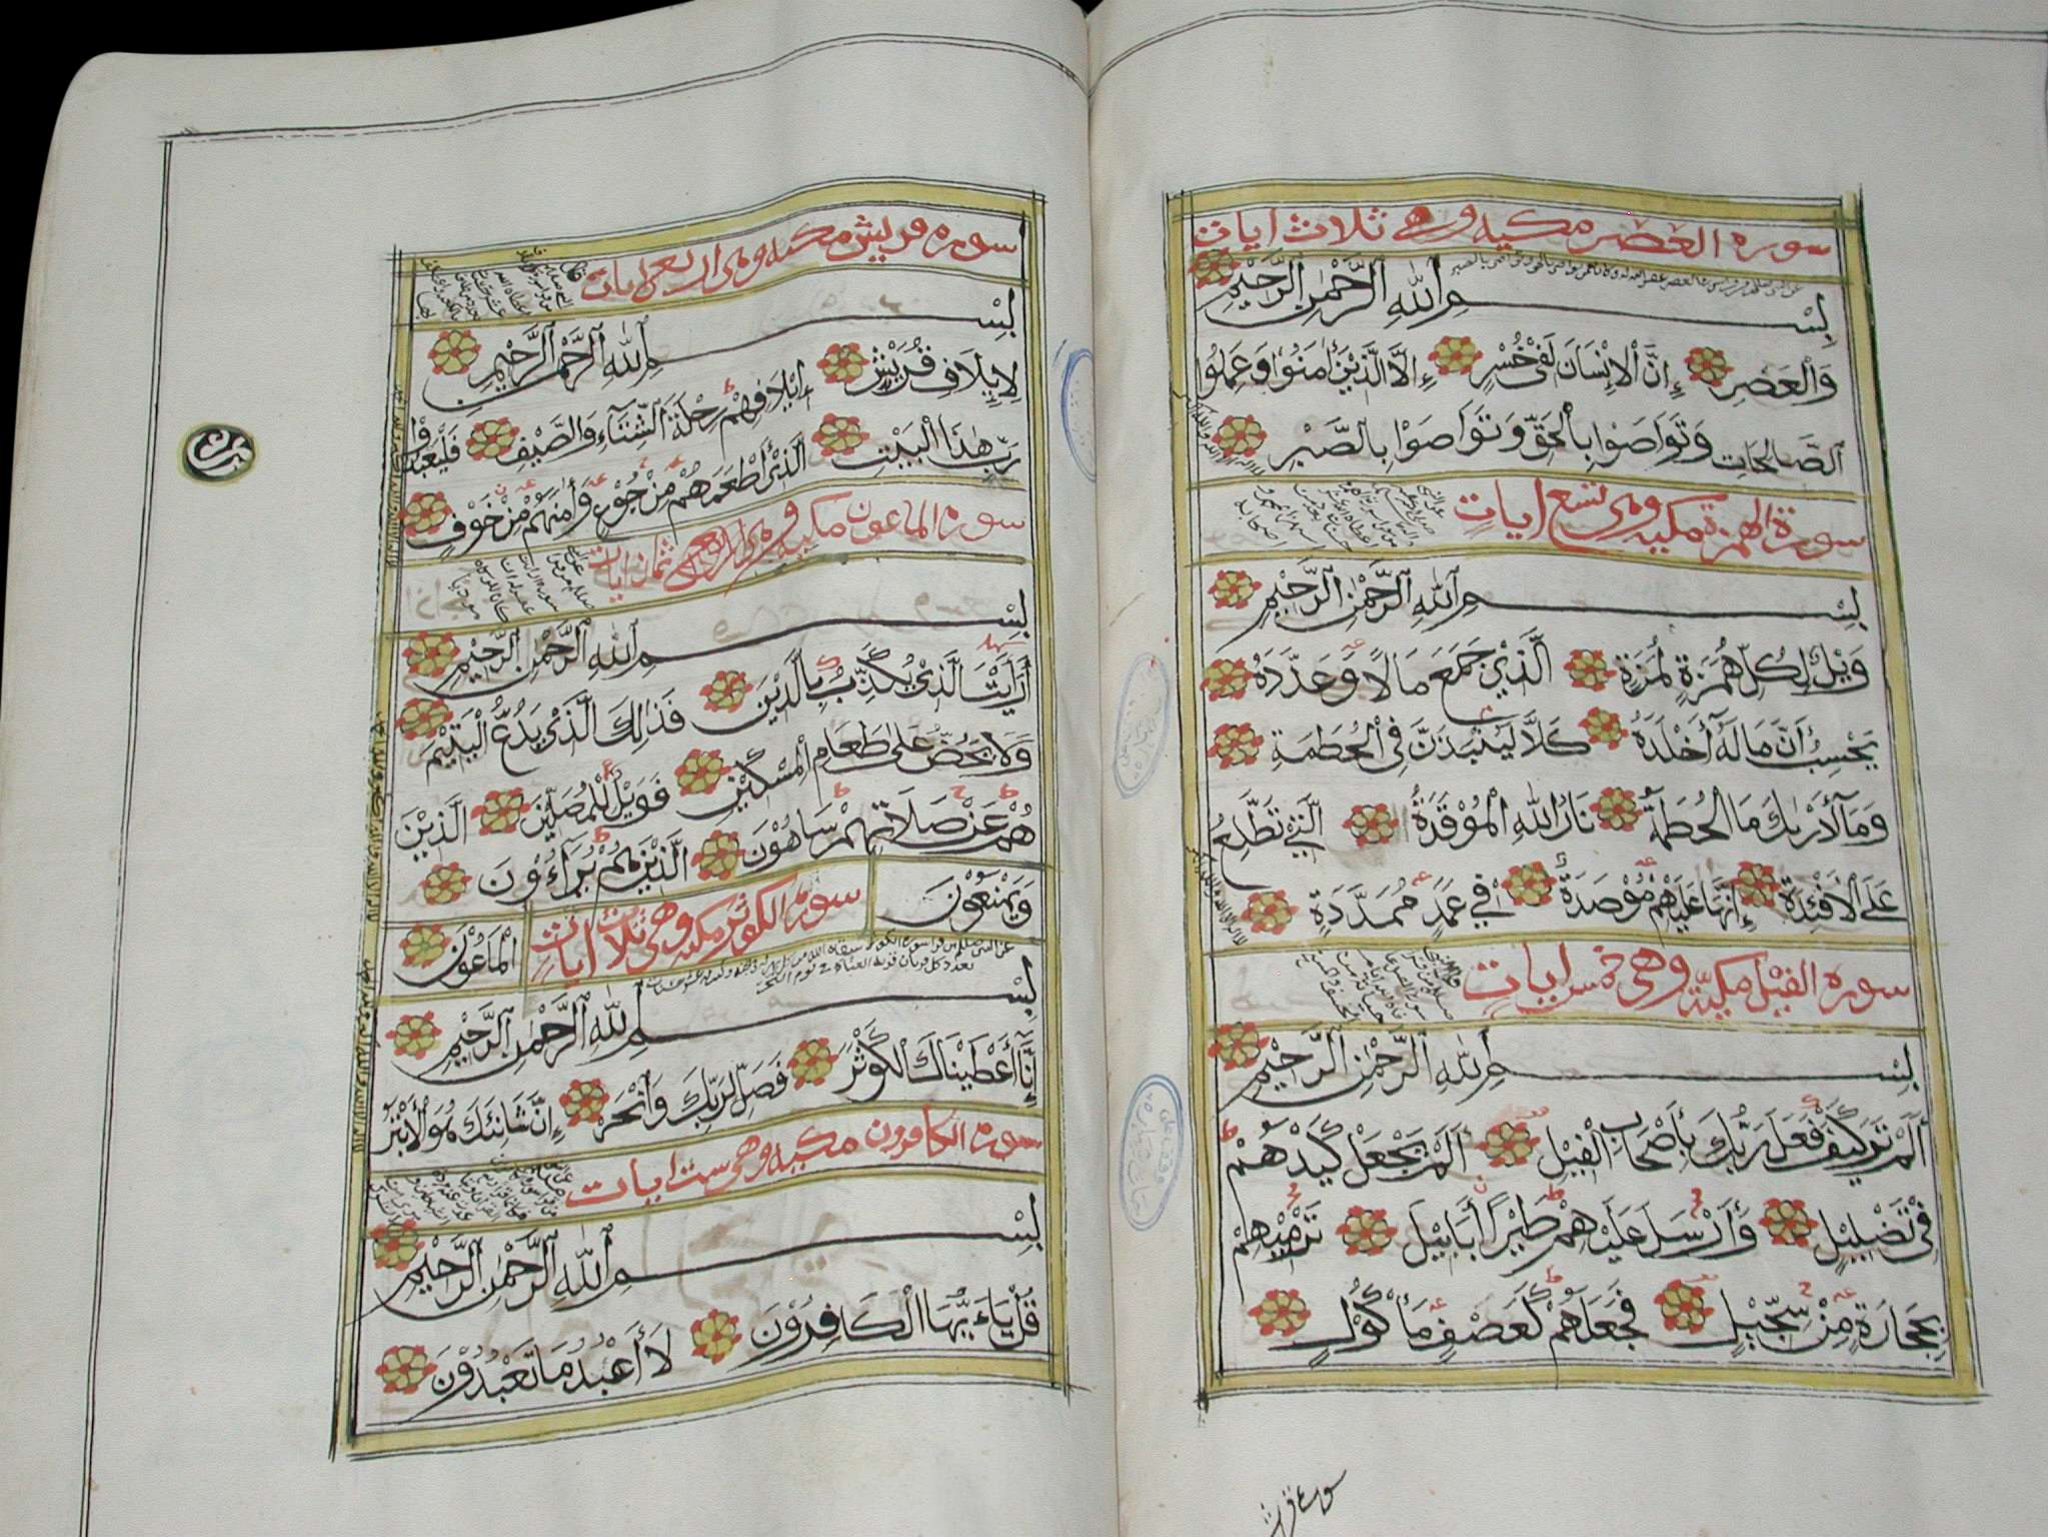 سورة العصر مكية وهي ثلاث ايات
بِسْمِ اللهِ الرَّحْمٰنِ الرَّحِيْمِ
وَالْعَصْرِ إِنَّ الْإِنْسَانَ لَفِيْ خُسْرٍ إِلَّا الَّذِيْنَ أٰمَنُوْا وَعَمِلُوا
الصَّالِحَاتِ وَتَوَاصَوْا بِالْحَقِّ وَتَوَاصَوْا بِالصَّبْرِ
سورة الهمزة مكية وهي تسع ايات
بِسْمِ اللهِ الرَّحْمٰنِ الرَّحِيْمِ
وَيْلٌ لِكُلِّ هُمَزَةٍ لُمَزَةٍ الَّذِيْ جَمَعَ مَالًا وَعَدَّدَهُ
يَحْسِبُ أَنَّ مَالَهُ أَخْلَدَهُ كَلَّا لَيُنْبَذَنَّ فِي الْحُطَمَةِ
وَمَآ أَدْرٰىكَ مَا الْحُطَمَةُ نَارُ اللهِ الْمُوْقَدَةُ الَّتِيْ تَطَّلِعُ
عَلَى الْأَفْئِدَةِ إِنَّهَا عَلَيْهِمْ مُؤْصَدَةٌ فِيْ عَمَدٍ مُمَدَّدَةٍ
سورة الفيل مكية وهي خمس ايات
بِسْمِ اللهِ الرَّحْمٰنِ الرَّحِيْمِ
أَلَمْ تَرَ كَيْفَ فَعَلَ رَبُّكَ بِأَصْحَابِ الْفِيْلِ أَلَمْ يَجْعَلْ كَيْدَهُمْ
فِيْ تَضْلِيْلٍ وَأَرْسَلَ عَلَيْهِمْ طَيْرًا أَبَابِيْلَ تَرْمِيْهِمْ
بِحِجَارَةٍ مِنْ سِجِّيْلٍ فَجَعَلَهُمْ كَعَصْفٍ مَأْكُوْلٍ
سورة قريش
سورة قريش مكية وهي اربع ايات
بِسْمِ اللهِ الرَّحْمٰنِ الرَّحِيْمِ
لِإِيْلَافِ قُرَيْشٍ إِيْلَافِهِمْ رِحْلَةَ الشِّتَآءِ وَالصَّيْفِ فَلْيَعْبُدُوْا
رَبَّ هٰذَا الْبَيْتِ الَّذِيْ أَطْعَمَهُمْ مِنْ جُوْعٍ وَأٰمَنَهُمْ مِنْ خَوْفٍ
سورة الماعون مكية وهي ثمان ايات
بِسْمِ اللهِ الرَّحْمٰنِ الرَّحِيْمِ
أَرَأَيْتَ الَّذِيْ يُكَذِّبُ بِالدِّيْنِ فَذٰلِكَ الَّذِيْ يَدُعُّ الْيَتِيْمَ
وَلَا يَحُضُّ عَلٰى طَعَامِ الْمِسْكِيْنِ فَوَيْلٌ لِلْمُصَلِّيْنَ الَّذِيْنَ
هُمْ عَنْ صَلَاتِهِمْ سَاهُوْنَ الَّذِيْنَ هُمْ يُرَآءُوْنَ
وَيَمْنَعُوْنَ الْمَاعُوْنَ
سورة الكوثر مكية وهي ثلاث ايات
بِسْمِ اللهِ الرَّحْمٰنِ الرَّحِيْمِ
إِنَّآ أَعْطَيْنَاكَ الْكَوْثَرَ فَصَلِّ لِرَبِّكَ وَانْحَرْ إِنَّ شَانِئَكَ هُوَ الْأَبْتَرُ
سورة الكافرون مكية وهي ست ايات
بِسْمِ اللهِ الرَّحْمٰنِ الرَّحِيْمِ
قُلْ يَاءَيُّهَا الْكَافِرُوْنَ لَا أَعْبُدُ مَا تَعْبُدُوْنَ